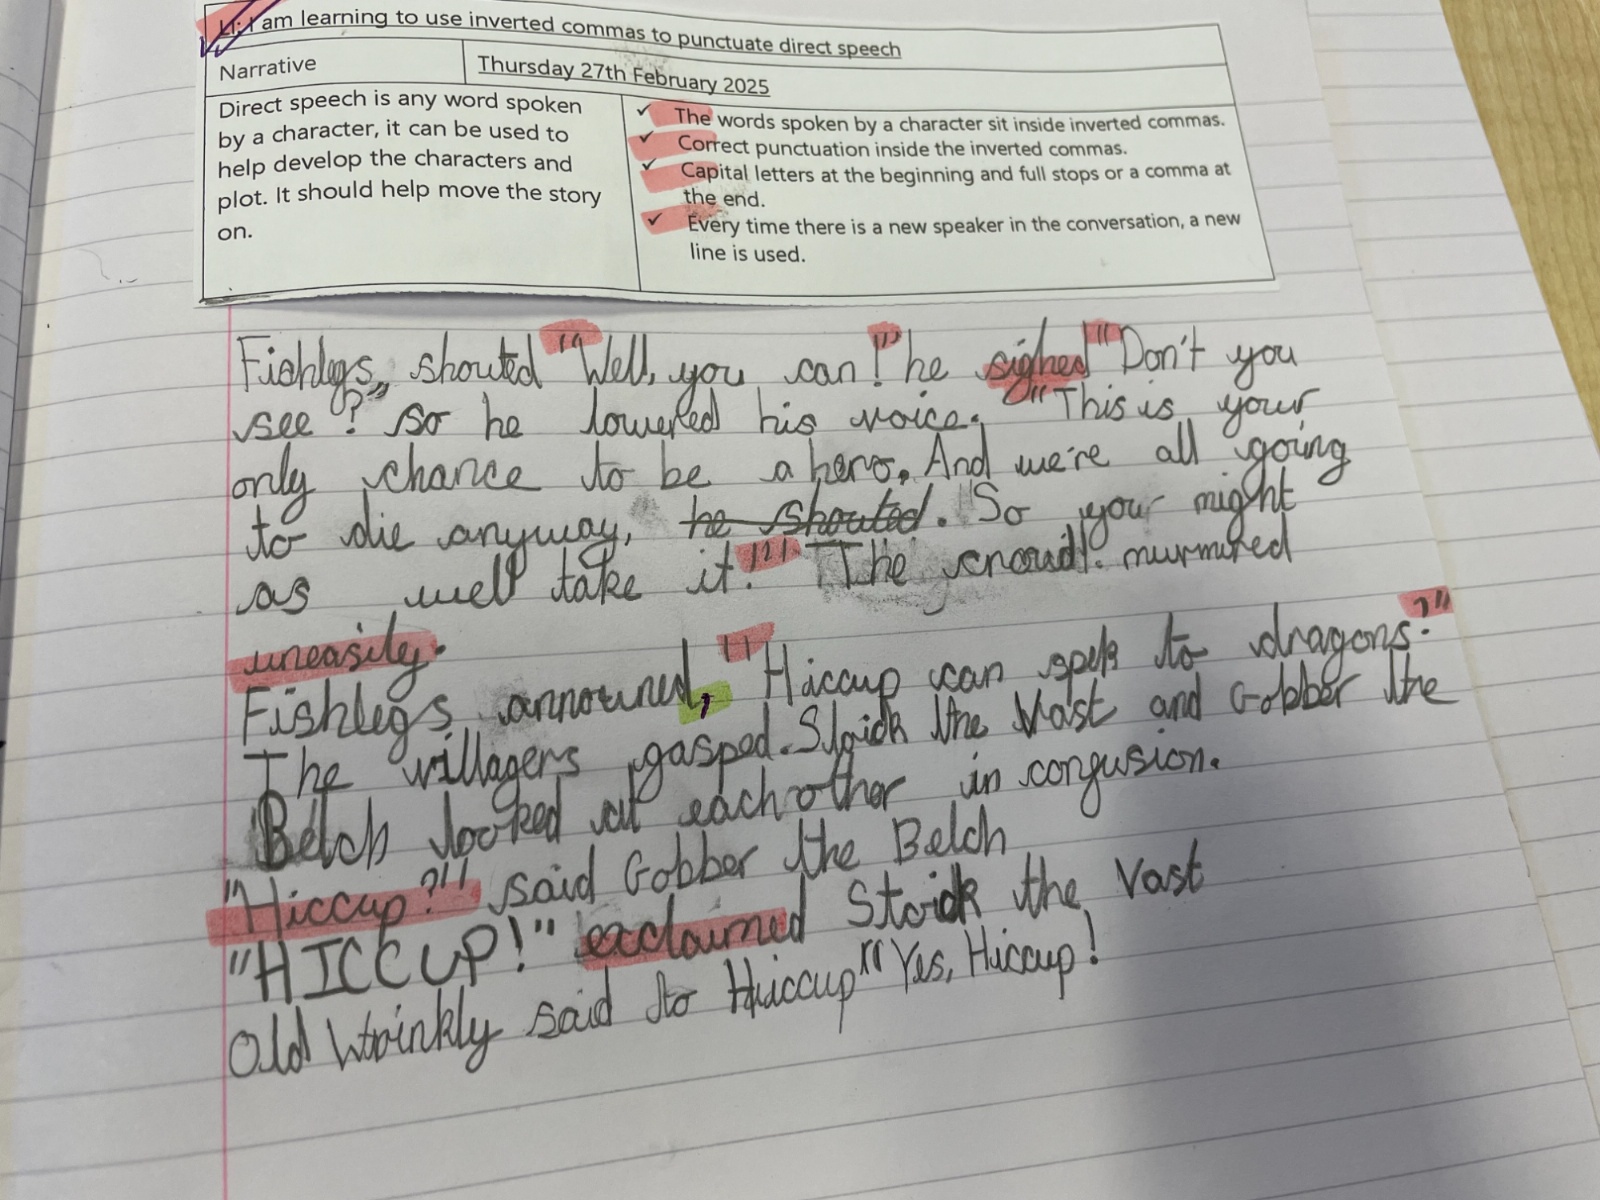 LI: I am learning to use inverted commas to punctuate direct speech
Narrative
Thursday 27th February 2025
Direct speech is any word spoken
by a character, it can be used to
help develop the characters and
plot. It should help move the story
on.
✓ The words spoken by a character sit inside inverted commas.
✓ Correct punctuation inside the inverted commas.
✓ Capital letters at the beginning and full stops or a comma at
the end.
✓ Every time there is a new speaker in the conversation, a new
line is used.
Fishlegs, shouted "Well, you can!" he sighed "Don't you
see?" so he lowered his voice. "This is your
only chance to be a hero. And we're all going
to die anyway, he shouted. So your might
as well take it!" The crowd. murmured
uneasily.
Fishlegs announed, "Hiccup can spek to dragons."
The villagers gasped. Stoick the Vast and Gobber the
Belch looked at each other in confusion.
"Hiccup?" said Gobber the Belch
"HICCUP!" exclaimed Stoick the Vast
Old Wrinkly said to Hiccup "Yes, Hiccup!